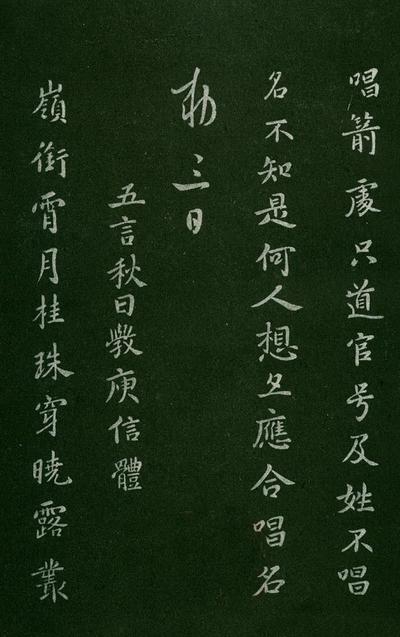 唱箭處只道官号及姓不唱
名不知是何人想應合唱名
勅 三日
五言秋日斆庾信體
嶺銜霄月桂珠穿曉露叢